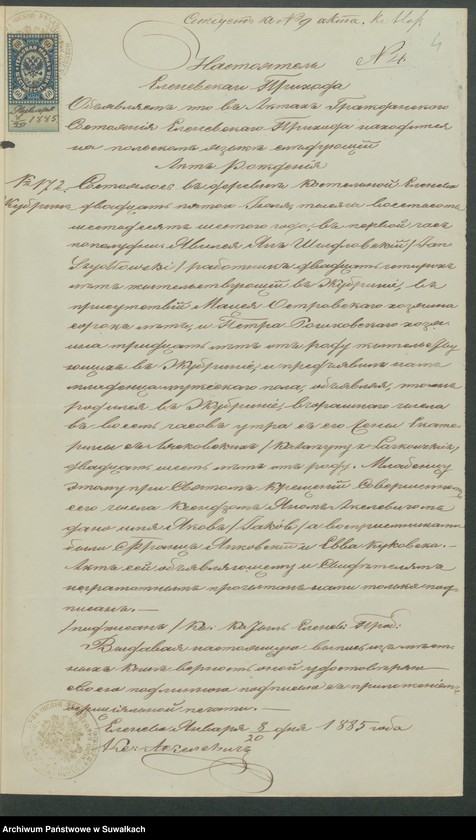 къ № 9 акта.
№ 4.
4
Настоятель
Еленевскаго Прихода
Объявляетъ что въ Актахъ Гражданскаго
Состоянія Еленевскаго Прихода находится
на польскомъ языкѣ слѣдующій
Актъ Рожденія
№ 172. Состоялось въ деревнѣ костельной Еленево
двадцать пятаго Іюля тысяча восемьсотъ
шестьдесятъ шестого года, въ первой часъ
пополудни. Явился Янъ Шидловскій /Jan
Szydłowski/ работникъ двадцать четырехъ
лѣтъ жительствующій въ Жубринѣ, въ
присутствіи Мацея Островскаго хозяина
сорокъ лѣтъ, и Петра Рошковскаго хозяи-
на тридцать лѣтъ отъ роду жительству-
ющихъ въ Жубринѣ, и предъявилъ намъ
младенца мужескаго пола, объявляя, что онъ
родился въ Жубринѣ, вчерашняго числа
въ восемь часовъ утра отъ его Жены Екате-
рины
двадцать шесть лѣтъ отъ роду. Младенцу
этому при Святомъ Крещеніи совершенномъ
сего числа Ксендзомъ
дано имя Яковъ /Jakób/ а воспріемниками
были Францъ Янковскій и Евва Жуковска.
Актъ сей объявляющему и Свидѣтелямъ
неграмотнымъ прочитанъ нами только под-
писанъ.—
/подписанъ/ Кс:
Выдавая настоящую выпись изъ мѣст-
ныхъ книгъ вѣрность оной удостовѣряю
своею подписью съ приложеніемъ
оффиціяльной печати.—
Еленево Января 8/20 дня 1885 года
Archiwum Państwowe w Suwałkach